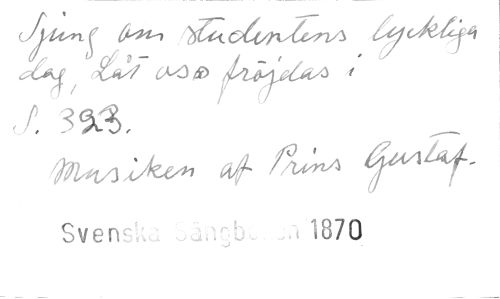 Sjung om studentens lyckliga
dag, Låt oss fröjdas i
S. 323.
Musiken af Prins Gustaf.
Svenska Sångboken 1870